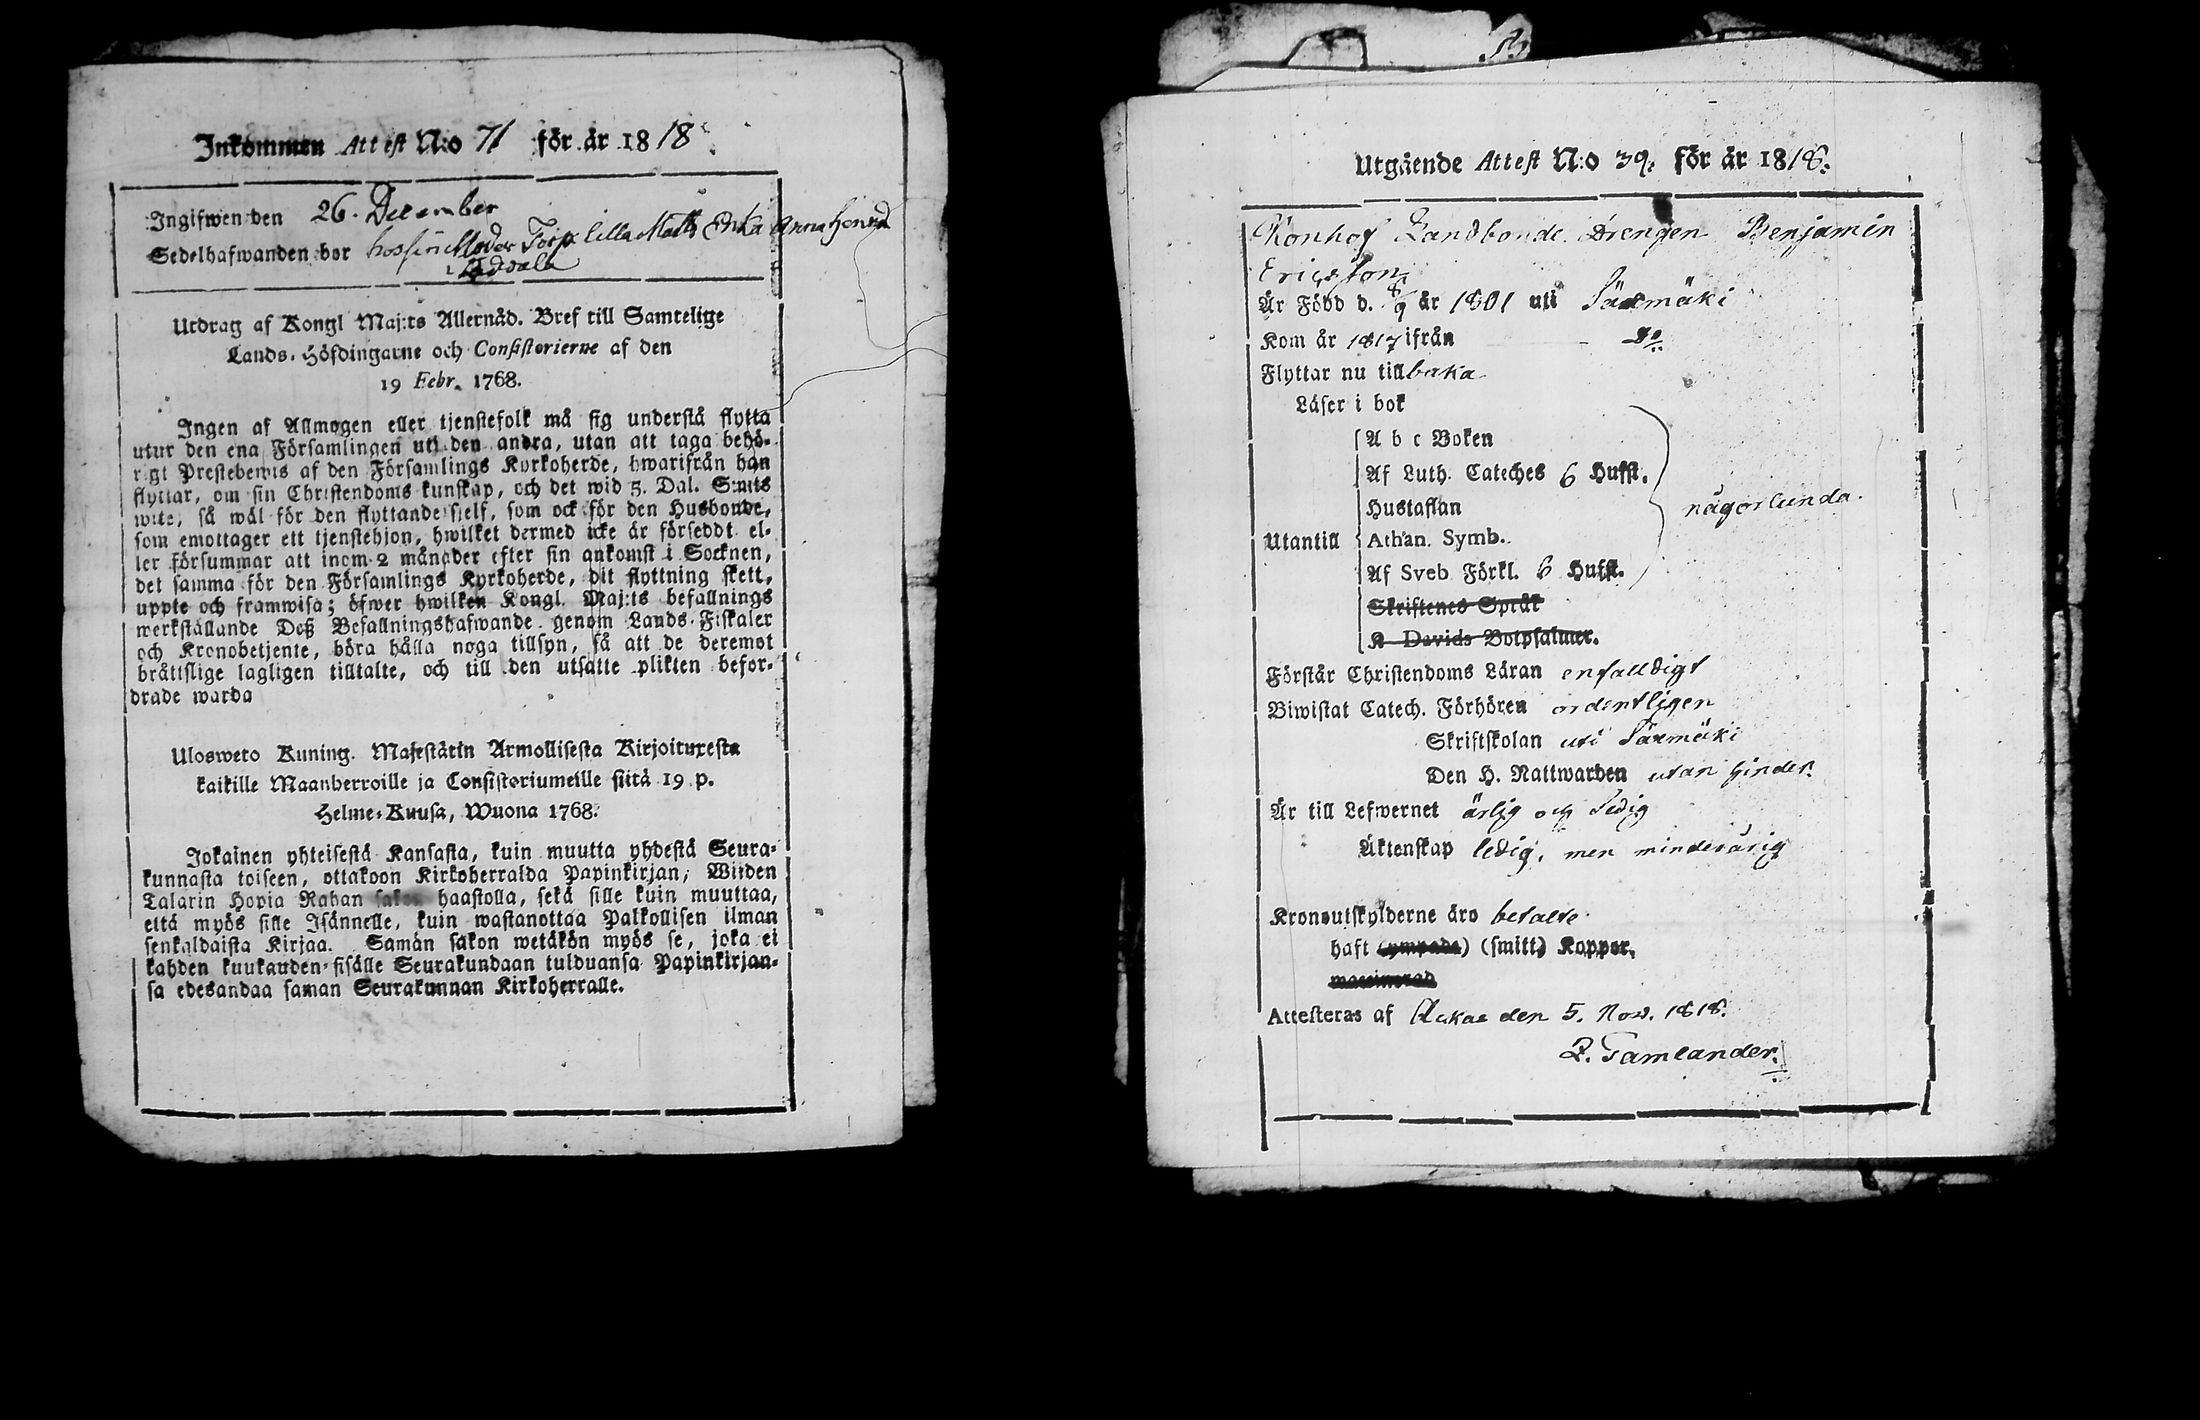 Inkommen Attest N:o 71 för år 1818.
Ingifwen den 26. December
Sedelhafwanden bor hos sin Moder Torp lilla Matts Enka Anna Henrsd
i
Utdrag af Kongl Maj:ts Allernåd. Bref till Samtelige
Lands-Höfdingarne och Consistorierne af den
19 Febr. 1768.
Ingen af Allmogen eller tjenstefolk må sig understå flytta
utur den ena Församlingen uti den andra, utan att taga behö-
rigt Prestebewis af den Församlings Kyrkoherde, hwarifrån han
flyttar, om sin Christendoms kunskap, och det wid 3. Dal. S:mts
wite, så wäl för den flyttande sjelf, som ock för den Husbonde,
som emottager ett tjenstehjon, hwilket dermed icke är försedt el-
ler försummar att inom 2 månader efter sin ankomst i Socknen,
det samma för den Församlings Kyrkoherde, dit flyttning skett,
uppte och framwisa; öfwer hwilken Kongl. Maj:ts befallnings
werkställande Deß Befallningshafwande genom Lands-Fiskaler
och Kronobetjente, böra hålla noga tillsyn, så att de deremot
bråttslige lagligen tilltalte, och till den utsatte plikten befor-
drade warda
Ulosweto Kuning. Majestätin Armollisesta Kirjoituxesta
kaikille Maanherroille ja Consistoriumeille siitä 19 p.
Helme-Kuusa, Wuona 1768.
Jokainen yhteisestä Kansasta, kuin muutta yhdestä Seura-
kunnasta toiseen, ottakoon Kirkoherralda Papinkirjan, Wiiden
Talarin Hopia Rahan sakon haastolla, sekä sille kuin muuttaa,
että myös sille Isännelle, kuin wastanottaa Palkollisen ilman
senkaldaista Kirjaa. Samän sakon wetäkön myös se, joka ei
kahden kuukauden sisälle Seurakundaan tulduansa Papinkirjan-
sa edesandaa saman Seurakunnan Kirkoherralle.
Utgående Attest N:o 39. för år 1818.
Konhof Landbonde Drengen Benjamin
Ericsson
Är Född d. 8/9 år 1801 uti Säxmäki
Kom år 1817 ifrån d:o
Flyttar nu tillbaka
Läser i bok
A b c Boken
Af Luth. Cateches 6 Hufst.
Hustaflan någorlunda.
Utantill Athan. Symb.
Af Sveb Förkl. 6 Hufst.
Skriftenes Språk
K Davids Botpsalmer.
Förstår Christendoms Läran enfalldigt
Biwistat Catech. Förhören ordentligen
Skriftskolan uti Säxmäki
Den H. Nattwarden utan hinder.
Är till Lefwernet ärlig och sedig
Äktenskap ledig, men minderårig
Kronoutskylderne äro betalte
haft (ympade) (smitt) Koppor.
vaccinerad
Attesteras af Ackas den 5. Nov. 1818.
Z. Tamlander.